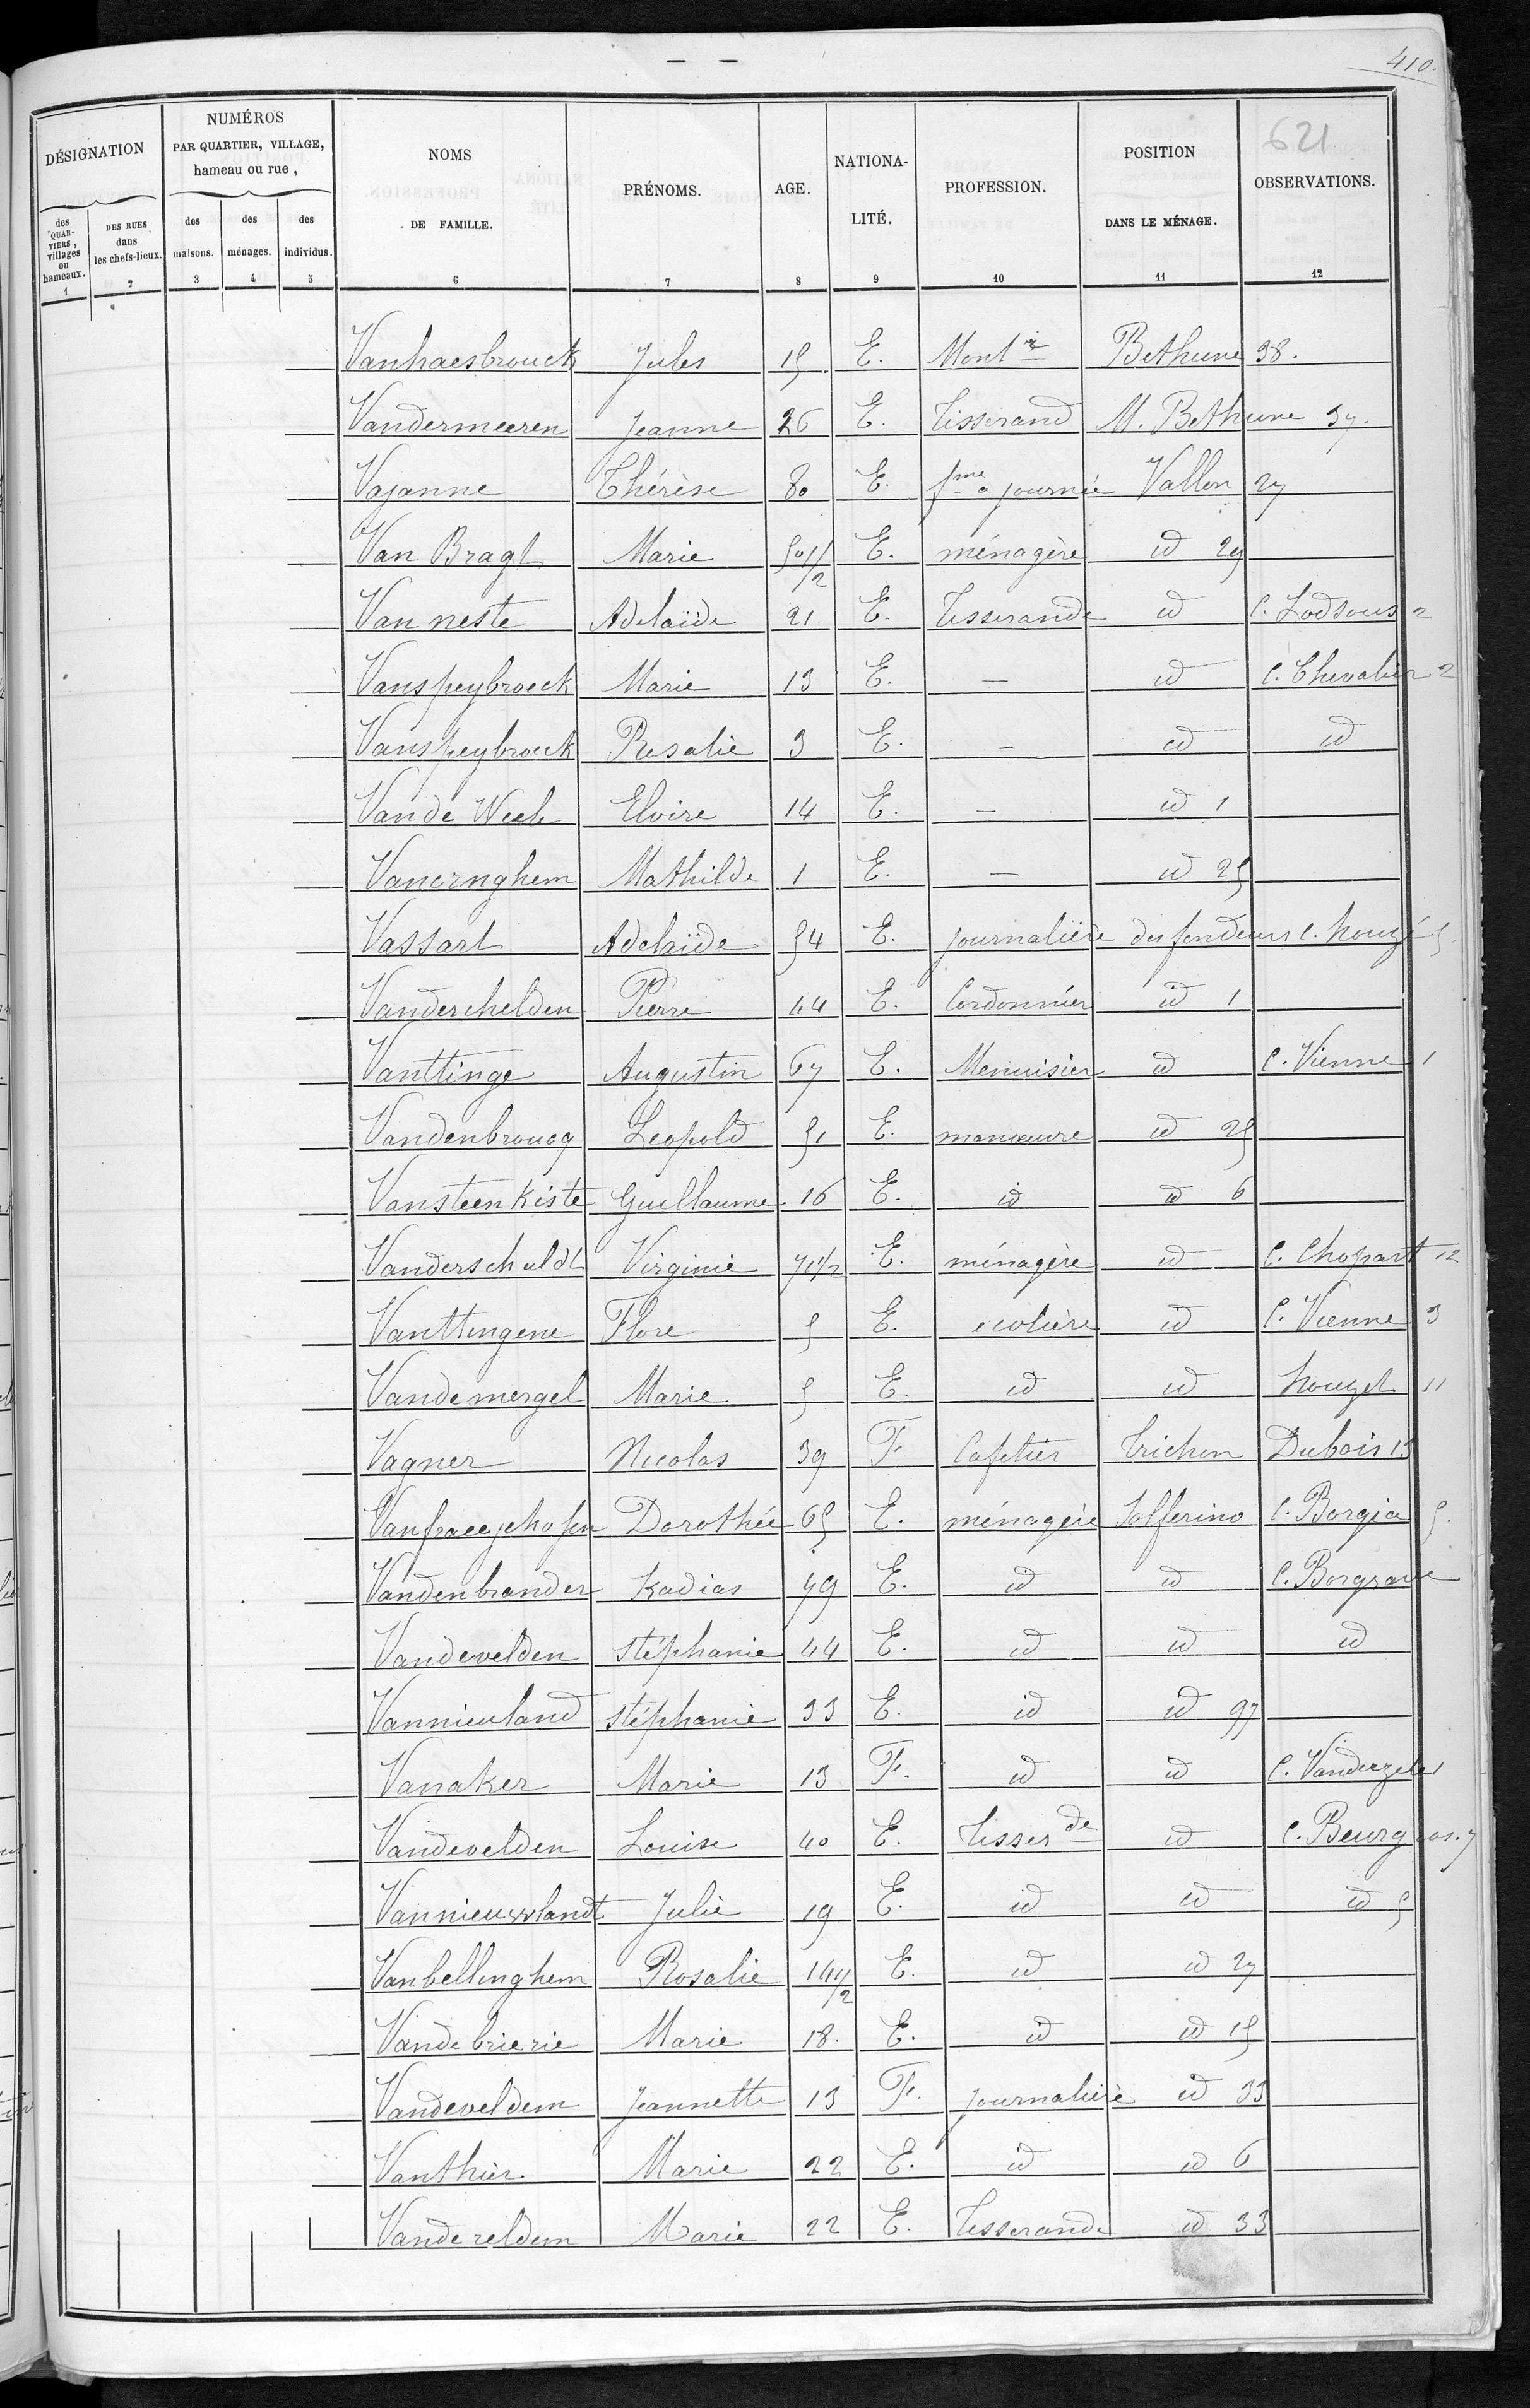 410.
621
DÉSIGNATION
des QUARTIERS, villages ou hameaux. 1
DES RUES dans les chefs-lieux. 2
NUMÉROS PAR QUARTIER, VILLAGE, hameau ou rue,
des maisons. 3
des ménages. 4
des individus. 5
NOMS DE FAMILLE. 6
PRÉNOMS. 7
AGE. 8
NATIONALITÉ. 9
PROFESSION. 10
POSITION DANS LE MÉNAGE. 11
OBSERVATIONS. 12
Vanhaesbrouck Jules 15 E. Bethune 38.
Vandermeeren Jeanne 26 E. Tisserand M. Bethune 37.
Vajanne Thérèse 80 E. fme a journée Vallon 27
Van Bragt Marie 50 1/2 E. ménagère id 29
Van neste Adelaïde 21 E. Tisserande id C. Lodsous 2
Vanspeybroeck Marie 13 E. — id C. Chevalier 2
Vanspeybroeck Rosalie 3 E. — id id
Vande Weele Elvire 14 E. — id 1
Vanernghem Mathilde 1 E. — id 25
Vassart Adelaïde 54 E. journalière des fondeurs C. houzé 5
Vanderchelden Pierre 44 E. Cordonnier id 1
Vanttinge Augustin 67 E. Menuisier id C. Vienne 1
Vandenbroucq Leopold 51 E. manœuvre id 25
Vansteenkiste Guillaume 16 E. id id 6
Vanderschuldt Virginie 71 1/2 E. ménagère id C. Chopart 12
Vanttingene Flore 5 E. ecolière id C. Vienne 3
Vandemergel Marie 5 E. id id houzet 11
Vagner Nicolas 39 F Cafetier Trichon Dubois 13
Dorothée 65 E. ménagère Solferino C. Borgia 5.
Vandenbrander Kadias 79 E. id id C. Borgrave
Vandevelden Stéphanie 44 E. id id id
Vannieuland Stéphanie 33 E. id id 97
Vanaker Marie 13 F. id id C. Vanderzele 1
Vandevelden Louise 40 E. Tisserde id C. Beurg 7
Vannieuwlandt Julie 19 E. id id id 5
Vanbellinghem Rosalie 14 1/2 E. id id 27
Vandebrierie Marie 18. E. id id 15
Vandeveldem Jeannette 13 F. journalière id 33
Vanthier Marie 22 E. id id 6
Vandereldem Marie 22 E. Tisserande id 33